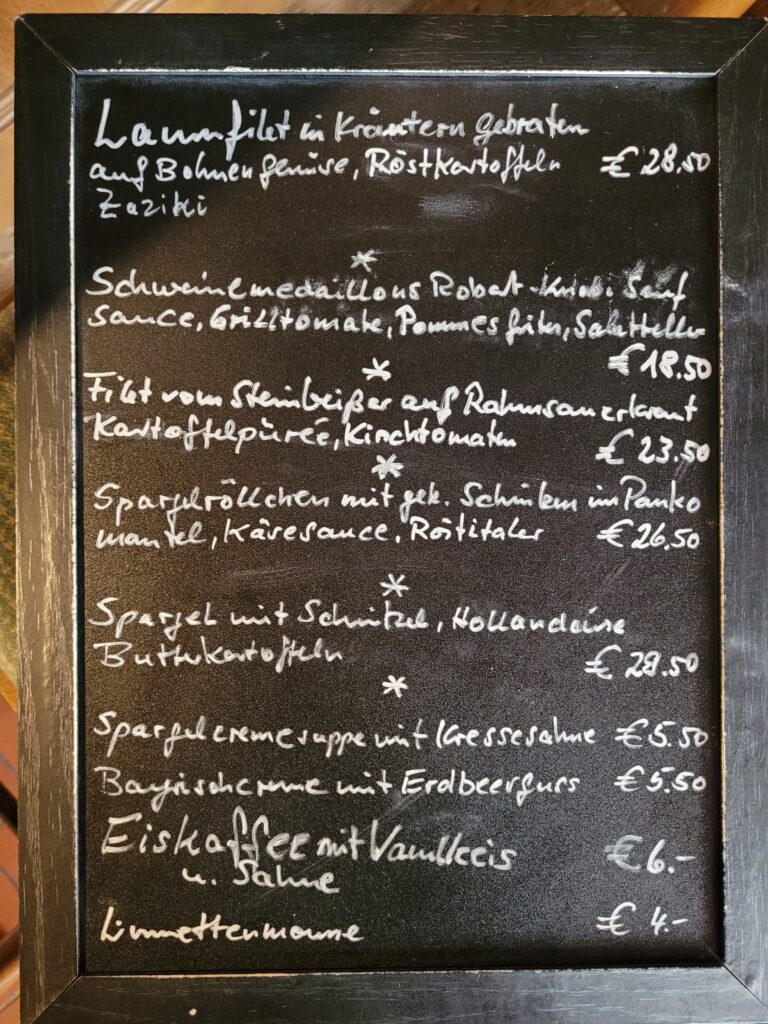 Lammfilet in Kräutern gebraten
auf Bohnengemüse, Röstkartoffeln € 28.50
Zaziki
*
Schweinemedaillons Robert - Senf
sauce, Grilltomate, Pommes frites, Salatteller
€ 18.50
*
Filet vom Steinbeißer auf Rahmsauerkraut
Kartoffelpüree, Kirschtomaten € 23.50
*
Spargelröllchen mit gek. Schinken im Panko
mantel, Käsesauce, Röstitaler € 26.50
*
Spargel mit Schnitzel, Hollandaise
Butterkartoffeln € 28.50
*
Spargelcremesuppe mit Kressesahne € 5.50
Bayrischcreme mit Erdbeerguss € 5.50
Eiskaffee mit Vanilleeis € 6.-
u. Sahne
Limettenmousse € 4.-